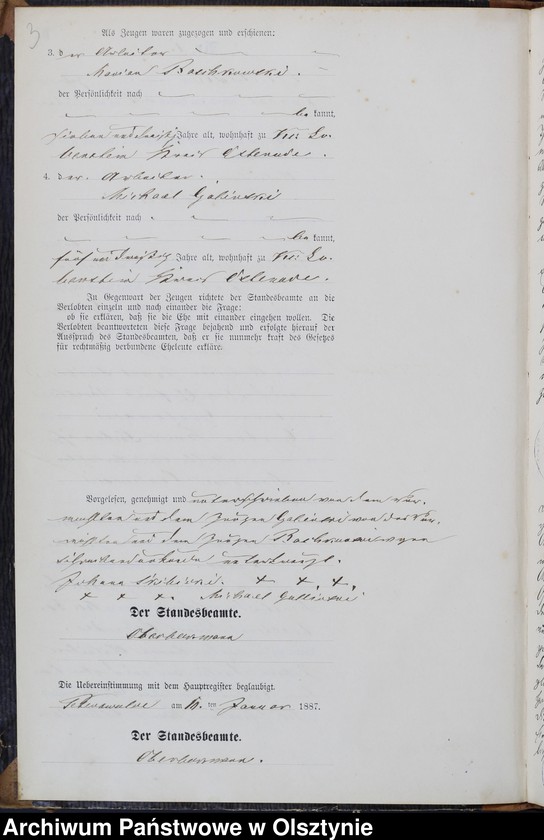 3
Als Zeugen waren zugezogen und erschienen:
3. der Arbeiter
Marian
der Persönlichkeit nach
bekannt,
sieben und dreißig Jahre alt, wohnhaft zu
Kreis Osterode.
4. der Arbeiter
Michael Galinski
der Persönlichkeit nach
bekannt,
fünf und dreißig Jahre alt, wohnhaft zu
Kreis Osterode.
In Gegenwart der Zeugen richtete der Standesbeamte an die
Verlobten einzeln und nach einander die Frage:
ob sie erklären, daß sie die Ehe mit einander eingehen wollen. Die
Verlobten beantworteten diese Frage bejahend und erfolgte hierauf der
Ausspruch des Standesbeamten, daß er sie nunmehr kraft des Gesetzes
für rechtmäßig verbundene Eheleute erkläre.
Vorgelesen, genehmigt und unterschrieben von dem Ver-
mählten und dem Zeugen Galinski von der Ver-
mählten und dem Zeugen wegen
unterkreuzt.
Johann + + +,
+ + +. Michael Gallinski
Der Standesbeamte.
Die Uebereinstimmung mit dem Hauptregister beglaubigt.
am ten Januar 1887.
Der Standesbeamte.
Archiwum Państwowe w Olsztynie